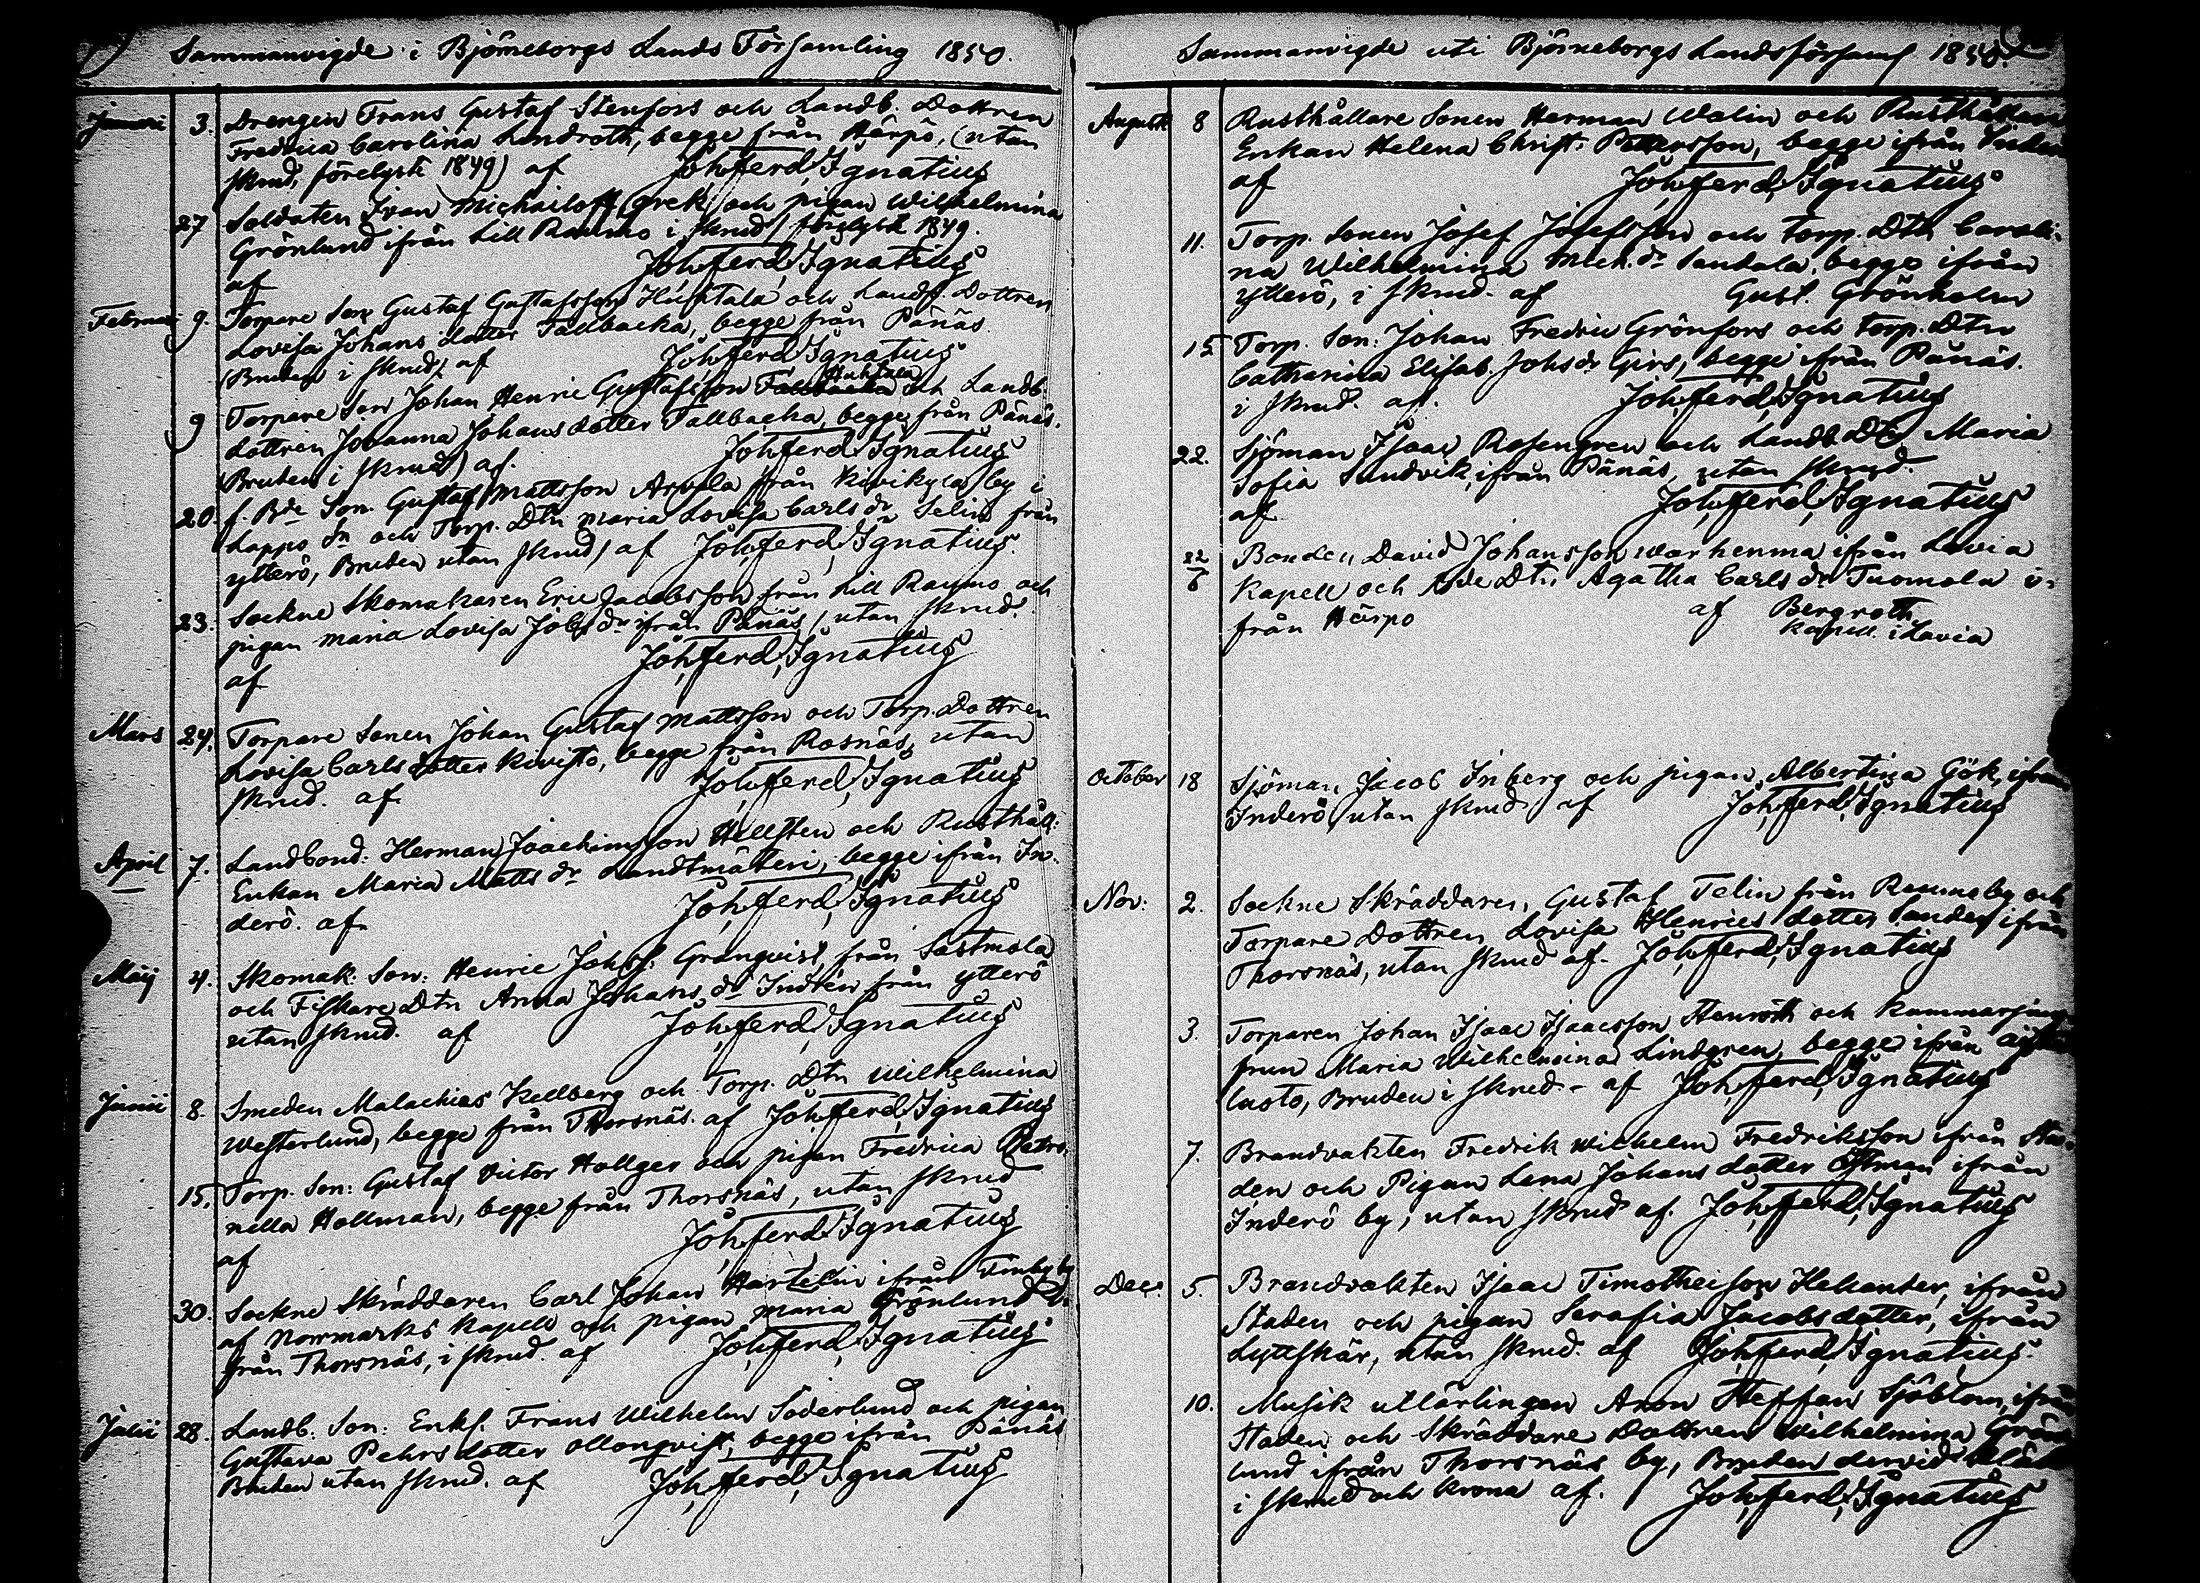 Sammanvigde i Björneborgs Lands Församling 1850.
Januari 3. Drengen Frans Gustaf Stenfors och Landb. Dottren
Fredrica Carolina Lindroth, begge från Härpö, (utan
skrud, förelyste 1849) af Joh, ferd, Ignatius
27 Soldaten Ivan Michailoff grek och pigan Wilhelmina
Grönlund ifrån Lill Raumo i skrud / förelyste 1849.
af Joh, ferd, Ignatius
Februari 9. Torpare Son Gustaf Gustafsson Huhtala och Landb. Dottren
Lovisa Johans dotter Tallbacka, begge från Pänäs.
(Bruden i skrud) af Joh, ferd, Ignatius
Huhtala
9 Torpare Son Johan Henric Gustafsson och Landb.
dottren Johanna Johans dotter Tallbacka, begge från Pänäs.
(Bruden i skrud) af. Joh, ferd, Ignatius
20 f. Bde Son. Gustaf Mattsson Arvela från Kivikylä by i
Lappo Sn och Torp. Dtn Maria Lovisa Carls dr Selin från
ytterö, Bruden utan skrud / af Joh, ferd, Ignatius.
23. Sockne Skomakaren Eric Jacobsson från Lill Raumo och
pigan Maria Lovisa Jobs dr ifrån Pänäs / utan skrud.
af Joh, ferd, Ignatius
Mars 24. Torpare Sonen Johan Gustaf Mattsson och Torp. Dottren
Lovisa Carls dotter Kivistö, begge från Rosnäs, utan
skrud. af Joh, ferd, Ignatius
April 7. Landbond: Herman Joachimsson Hellsten och Rusthåll:
Enkan Maria Matts dr Landtmäteri, begge ifrån In-
derö. af Joh, ferd, Ignatius
Maij 4. Skomak. Son: Henric Johss: Granqvist, från Sastmola
och Fiskare Dtn Anna Johans dr Indtén från ytterö
utan skrud. af Joh, ferd, Ignatius
Junii 8. Smeden Malachias Kellberg och Torp. Dtn Wilhelmina
Westerlund, begge från Thorsnäs. af Joh, ferd, Ignatius
15. Torp. Son: Gustaf Victor Hollger och pigan Fredrica Petro-
nella Hollman, begge från Thorsnäs, utan skrud
af Joh, ferd, Ignatius
30. Sockne Skräddaren Carl Johan Hartelin ifrån Finby by
af Norrmarks Kapell och pigan Maria Grönlund
från Thorsnäs, i skrud. af Joh, ferd, Ignatius
Julii 28. Landb. Son: Enkl. Frans Wilhelm Söderlund och pigan
Gustava Pehrs dotter Ollonqvist, begge ifrån Pänäs
Bruden utan skrud. af Joh, ferd, Ignatius
Sammanvigde uti Björneborgs Landsförsaml 1850.
Augusti 8 Rusthållare Sonen Herman Walin och Rusthållare
Enkan Helena Christ. Pettersson, begge ifrån
af Joh, ferd, Ignatius
11. Torp. Sonen Josef Josefsson och torp. Dtn Caroli-
na Wilhelmina Mich. dr Sandala, begge ifrån
ytterö, i skrud. af Gust. Grönholm
15 Torp. Son: Johan Fredric Grönfors och torp. Dtn
Catharina Elisab. Johs dr Girs, begge ifrån Pänäs.
i skrud. af. Joh, ferd, Ignatius
22. Sjöman Isaac Rosengren och Landb. Dtr Maria
Sofia Sundvik, ifrån Pänäs, utan skrud.
af Joh, ferd, Ignatius
22/8 Bonden David Johansson Warhenma ifrån Lavia
Kapell och Bde Dtn Agatha Carls dr Tuomola i-
från Härpo af Bergroth
Kapell. i Lavia
October 18 Sjöman Jacob Inberg och pigan Albertina Gök, ifrån
Inderö, utan skrud af Joh, ferd, Ignatius
Nov: 2. Sockne Skräddaren, Gustaf Telin från Raumo by och
Torpare Dottren Lovisa Henrics dotter Sander ifrån
Thorsnäs, utan skrud af. Joh, ferd, Ignatius
3. Torparen Johan Isaac Isaacsson Henroth och Kammarjung-
frun Maria Wilhelmina Lindgren, begge ifrån
luoto, Bruden i skrud. - af Joh, ferd, Ignatius
7. Brandvakten Fredrik Wilhelm Fredriksson ifrån Sta-
den och Pigan Lena Johans dotter Östman ifrån
Inderö by, utan skrud af. Joh, ferd, Ignatius
Dec. 5. Brandvakten Isaac Timotheison Helander, ifrån
Staden och pigan Serafia Jacobsdotter, ifrån
Lyttskär, utan skrud. af Joh, ferd, Ignatius.
10. Musik ullärlingen Aron Steffan Sjöblom, ifrån
Staden och Skräddare Dottren Wilhelmina Grön-
lund ifrån Thorsnäs by, Bruden dervid klädd
i skrud och krona af. Joh, ferd, Ignatius